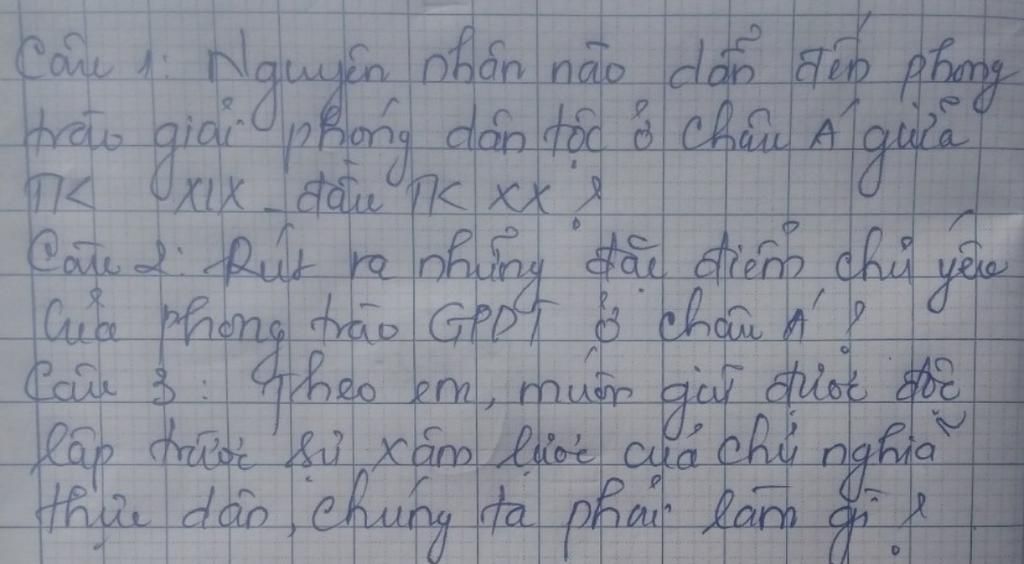 Câu 1: Nguyên nhân nào dẫn đến phong
trào giải phóng dân tộc ở Châu Á giữa
TK XIX - đầu TK XX ?
Câu 2: Rút ra những đặc điểm chủ yếu
của phong trào GPDT ở châu Á ?
Câu 3: Theo em, muốn giữ được độc
lập trước sự xâm lược của chủ nghĩa
thực dân, chúng ta phải làm gì ?